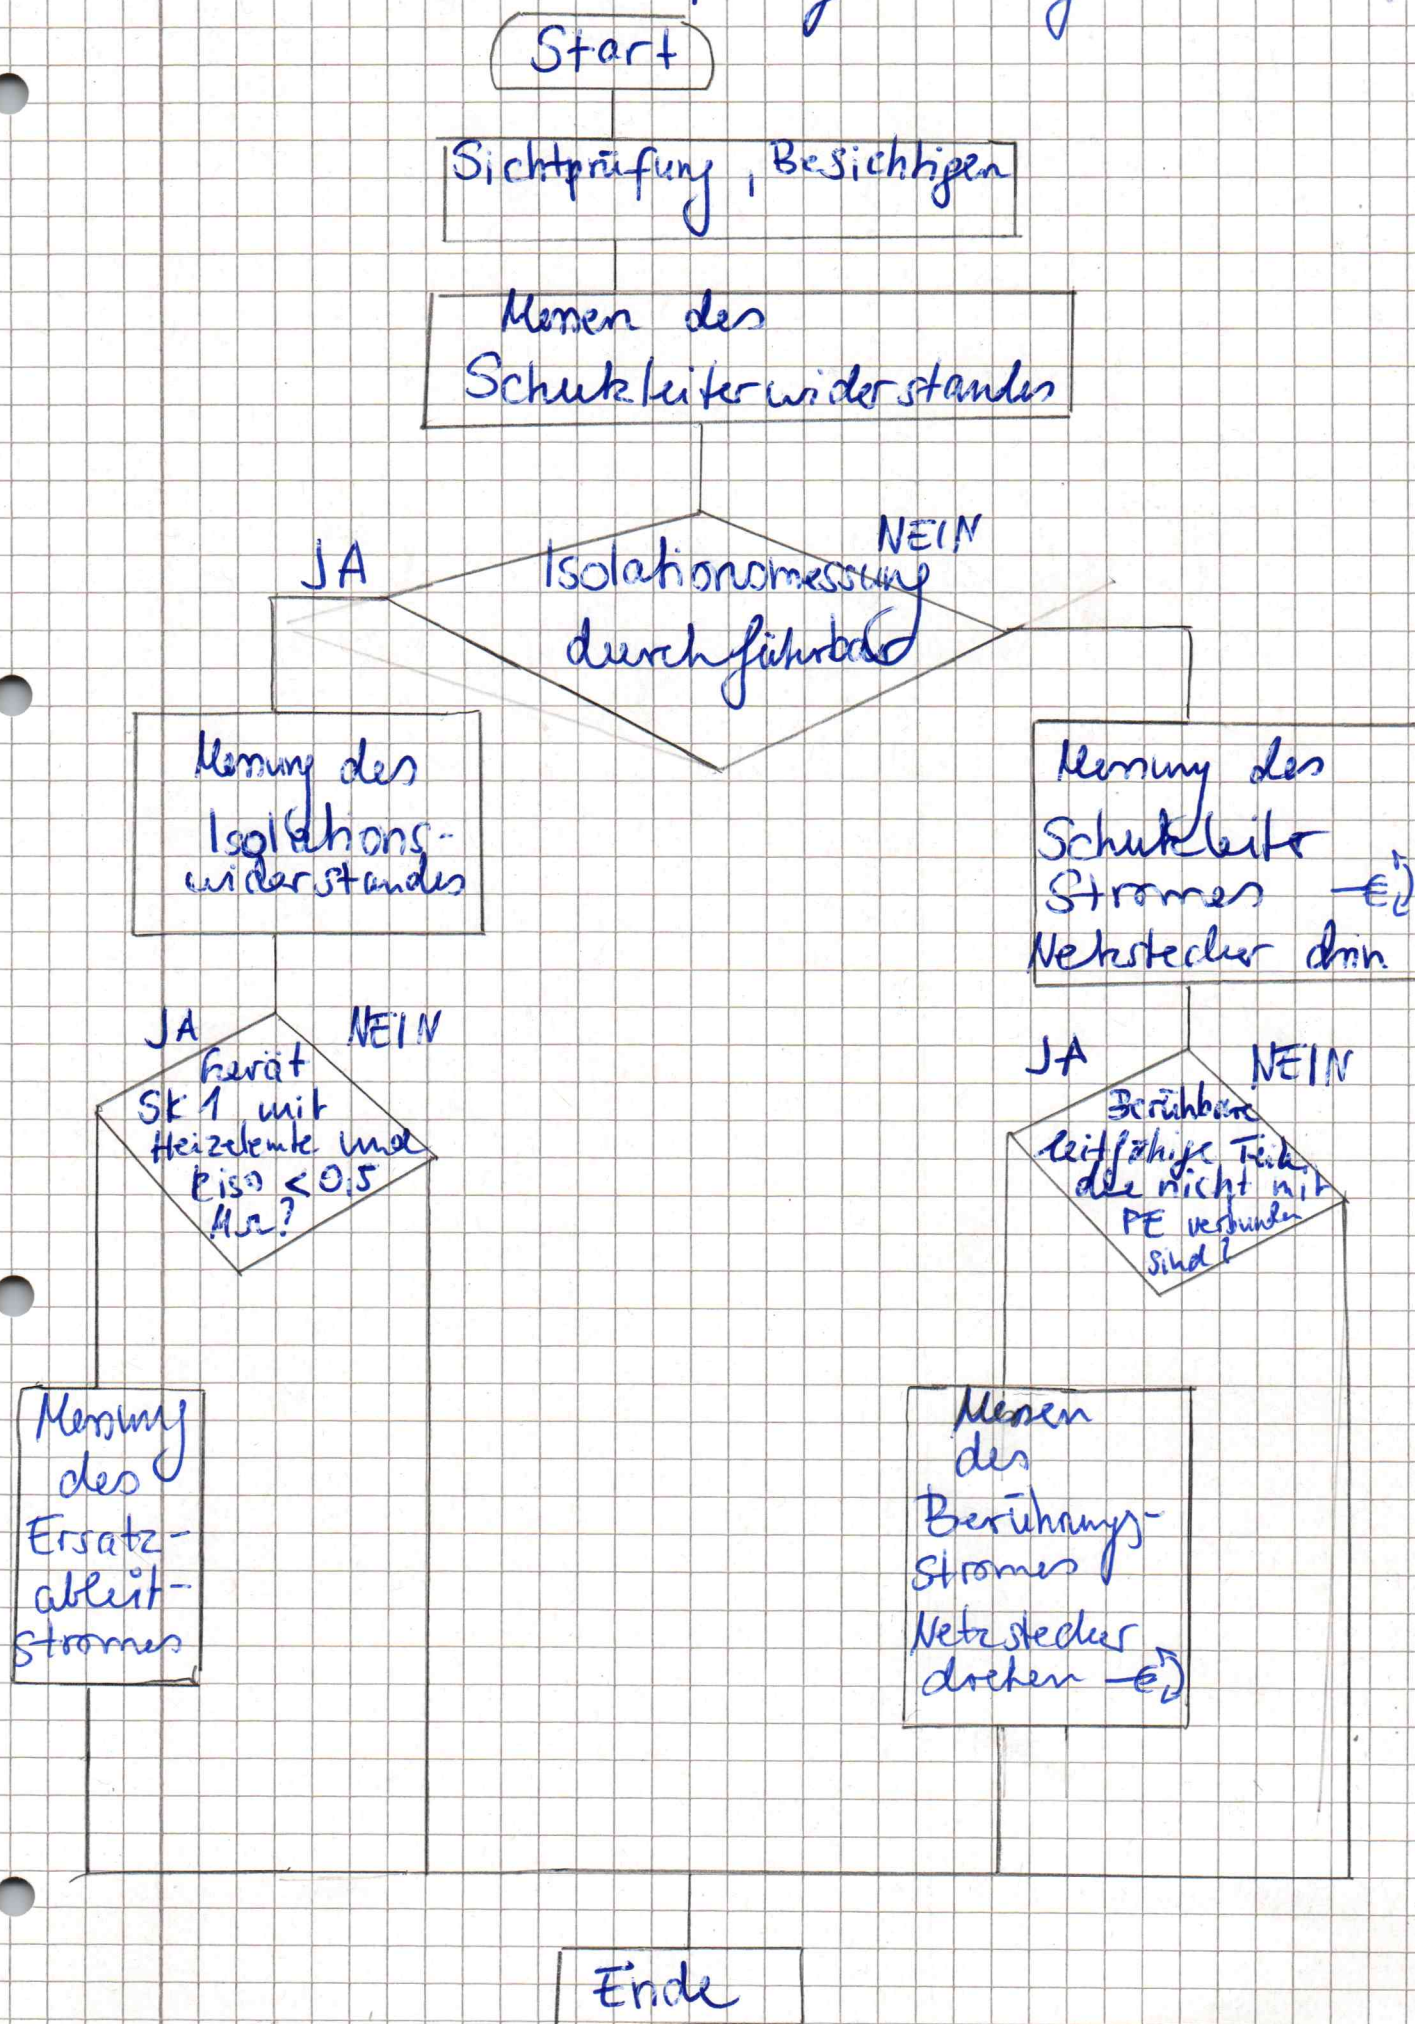 Start
Sichtprüfung, Besichtigen
Messen des
Schutzleiterwiderstandes
JA
NEIN
Isolationsmessung
durchführbar
Messung des
Isolations-
widerstandes
Messung des
Schutzleiter
Stromes
Netzstecker drin
JA
NEIN
Gerät
SK 1 mit
Heizelemte und
Riso < 0,5
MΩ?
JA
NEIN
Berühbare
leitfähige Teile,
die nicht mit
PE verbunden
sind?
Messung
des
Ersatz-
ableit-
stromes
Messen
des
Berührungs-
stromes
Netzstecker
drehen
Ende